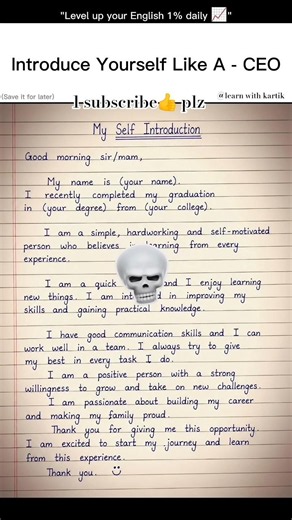 "Level up your English 1% daily 📈"
Introduce Yourself Like A - CEO
(Save it for later)
@learn with kartik
1 subscribe👍plz
My Self Introduction
Good morning sir/mam,
My name is (your name).
I recently completed my graduation
in (your degree) from (your college).
I am a simple, hardworking and self-motivated
person who believes in learning from every
experience.
I am a quick and I enjoy learning
new things. I am in improving my
skills and gaining practical knowledge.
I have good communication skills and I can
work well in a team. I always try to give
my best in every task I do.
I am a positive person with a strong
willingness to grow and take on new challenges.
I am passionate about building my career
and making my family proud.
Thank you for giving me this opportunity.
I am excited to start my journey and learn
from this experience.
Thank you. ☺